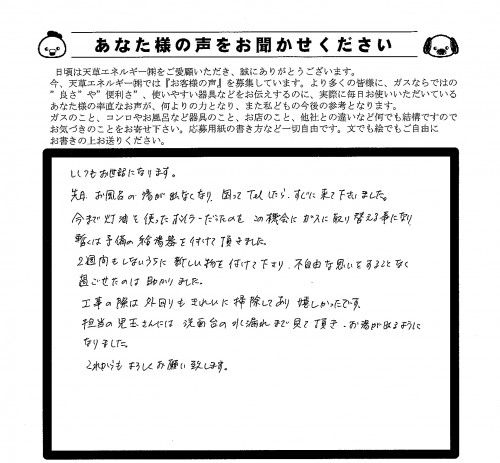 あなた様の声をお聞かせください
日頃は天草エネルギー㈱をご愛顧いただき、誠にありがとうございます。
今、天草エネルギー㈱では『お客様の声』を募集しています。より多くの皆様に、ガスならではの
”良さ”や”便利さ”、使いやすい器具などをお伝えするのに、実際に毎日お使いいただいている
あなた様の率直なお声が、何よりの力となり、また私どもの今後の参考となります。
ガスのこと、コンロやお風呂など器具のこと、お店のこと、他社との違いなど何でも結構ですので
お気づきのことをお寄せ下さい。応募用紙の書き方など一切自由です。文でも絵でもご自由に
お書きの上お送りください。
いつもお世話になります。
先日、お風呂の湯が出なくなり、困ってTelしたら、すぐに来て下さいました。
今まで灯油を使ったボイラーだったのを この機会にガスに取り替える事になり
暫くは予備の給湯器を付けて頂きました。
2週間もしないうちに新しい物を付けて下さり、不自由な思いをすることなく
過ごせたのは助かりました。
工事の際は外回りもきれいに掃除してあり 嬉しかったです。
担当の児玉さんには 洗面台の水漏れまで見て頂き、お湯が出るように
なりました。
これからもよろしくお願い致します。